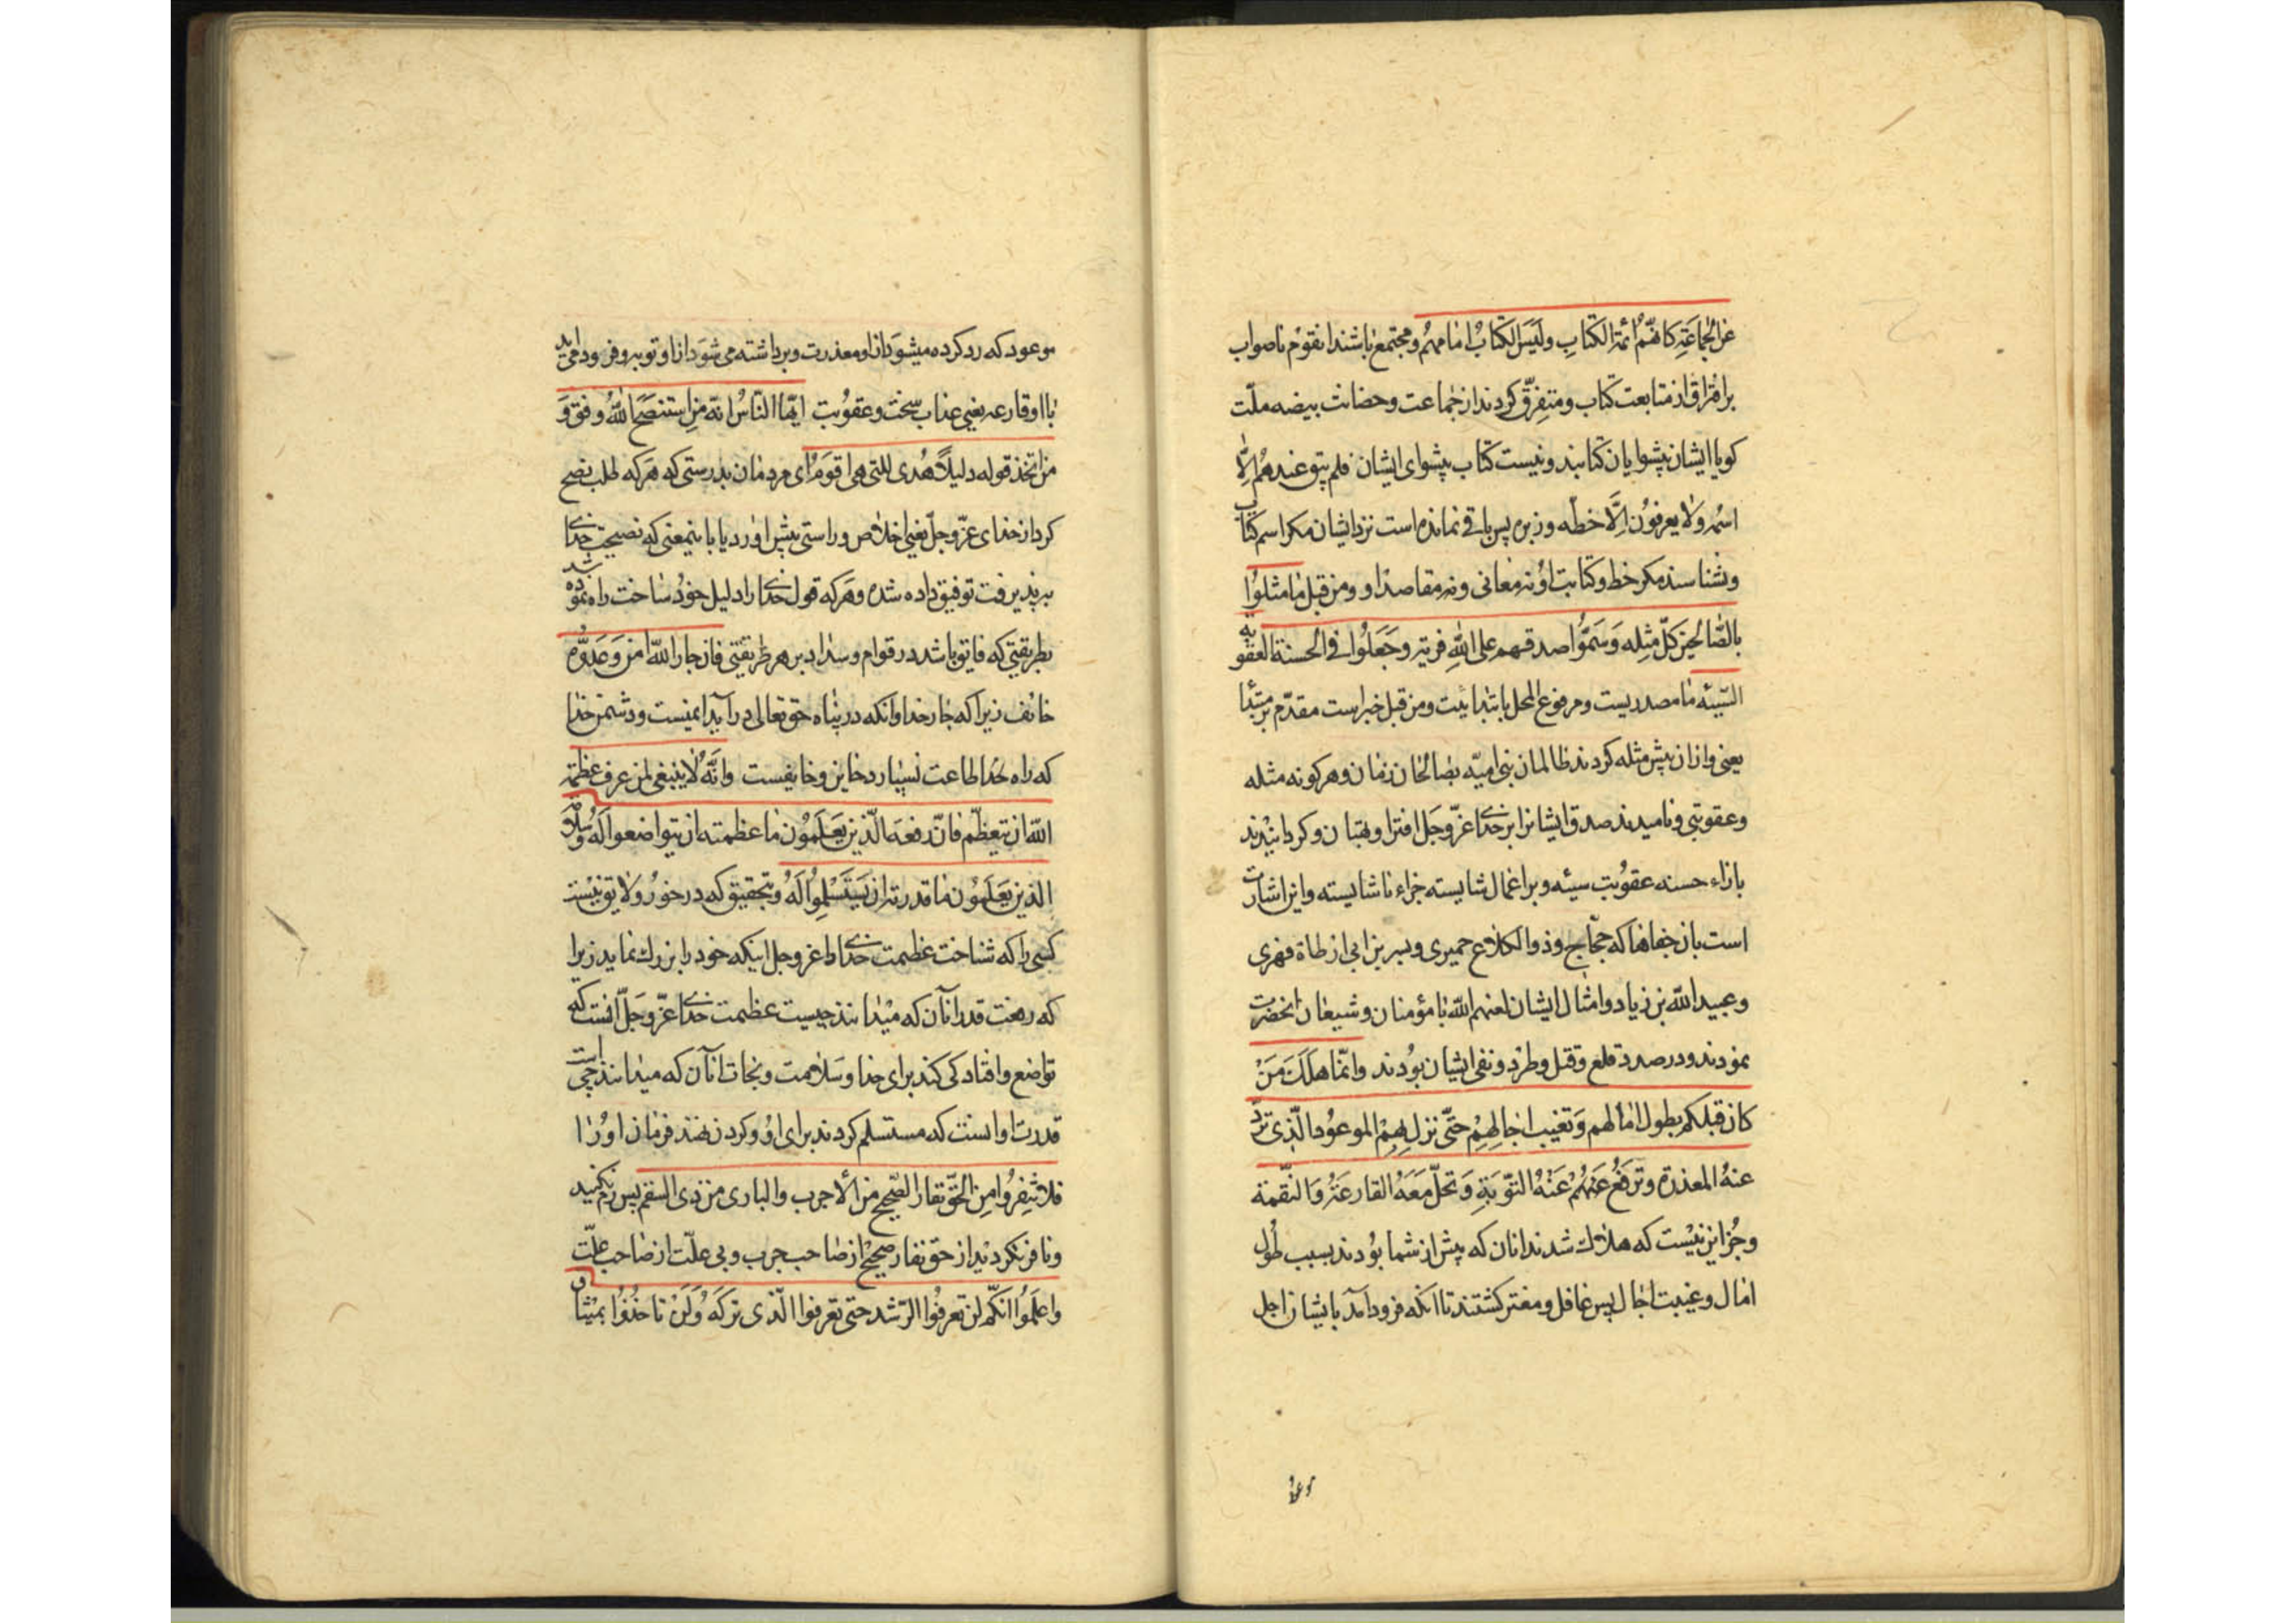 عن الجماعة كانهم ائمة الكتاب وليس الكتاب امامهم ومجتمع باشند انقوم ناصواب
بر افتراق از متابعت كتاب ومتفرق كردند از جماعت وحضانت بيضه ملت
كويا ايشان پيشوايان كتابند ونيست كتاب پيشواى ايشان فلم يبق عندهم الا
اسمه ولا يعرفون الا خطه وزبره پس باقى نمانده است نزد ايشان مكر اسم كتاب
ونشناسند مكر خط وكتابت او نه معانى ونه مقاصد او ومن قبل ما مثلوا
بالصالحين كل مثله وسموا صدقهم على الله فرية وجعلوا فى الحسنة العقوبة
السيئه ما مصدريست ومرفوع المحل بابتدائيت ومن قبل خبراست مقدم بر مبتدا
يعنى واز ان پيش مثله كردند ظالمان بنى اميه بصالحان زمان وهركونه مثله
وعقوبتى وناميدند صدق ايشانرا بر خداى عز وجل افترا وبهتان وكردانيدند
بازاء حسنه عقوبت سيئه وبر اعمال شايسته جزاء ناشايسته واين اشارت
است بان جفاها كه حجاج وذو الكلاع حميرى وبسر بن ابى ارطاة فهرى
وعبيد الله بن زياد وامثال ايشان لعنهم الله با مؤمنان وشيعان انحضرت
نمودند ودر صدد قلع وقتل وطرد ونفى ايشان بودند وانما هلك من
كان قبلكم بطول امالهم وتغيب اجالهم حتى نزل بهم الموعود الذى ترد
عنه المعذرة وترفع عنهم عنه التوبة وتحل معه القارعة والنقمة
وجز اين نيست كه هلاك شدند انان كه پيش از شما بودند بسبب طول
امال وغيبت اجال پس غافل ومغتر كشتند تا انكه فرود آمد بايشان اجل
موعود
موعود كه رد كرده ميشود از او معذرت وبرداشته مى شود از او توبه وفرود مى آيد
با او قارعه يعنى عذاب سخت وعقوبت ايها الناس انه من استنصح الله وفق و
من اتخذ قوله دليلا هدى للتى هى اقوم اى مردمان بدرستى كه هركه طلب نصح
كرد از خداى عز وجل يعنى اخلاص وراستى پيش اورد يا باينمعنى كه نصيحت خداى
بپذيرفت توفيق داده شد وهركه قول خداى را دليل خود ساخت راه نموده شد
بطريقتى كه فايق باشد در قوام وسداد بر هر طريقتى فان جار الله امن وعدوه
خائف زيرا كه جار خدا وانكه در پناه حق تعالى درآيد ايمنست ودشمن خدا
كه راه خدا طاعت نسپارد خاين وخايفست وانه لا ينبغى لمن عرف عظمة
الله ان يتعظم فان رفعة الذين يعلمون ما عظمته ان يتواضعوا له وسلامة
الذين يعلمون ما قدرته ان يستسلموا له وبتحقيق كه درخور ولايق نيست
كسى را كه شناخت عظمت خداى را عز وجل اينكه خود را بزرك نمايد زيرا
كه رفعت قدر انان كه ميدانند چيست عظمت خداى عز وجل انست كه
تواضع وافتادكى كنند براى خدا وسلامت ونجات انان كه ميدانند چيست
قدرت او انست كه مستسلم كردند براى او وكردن نهند فرمان او را
فلا تنفروا من الحق نفار الصحيح من الاجرب والبارى من ذى السقم پس رم نكنيد
ونافر نكرديد از حق نفار صحيح از صاحب جرب وبى علت از صاحب علت
واعلموا انكم لن تعرفوا الرشد حتى تعرفوا الذى تركه ولن تاخذوا بميثاق